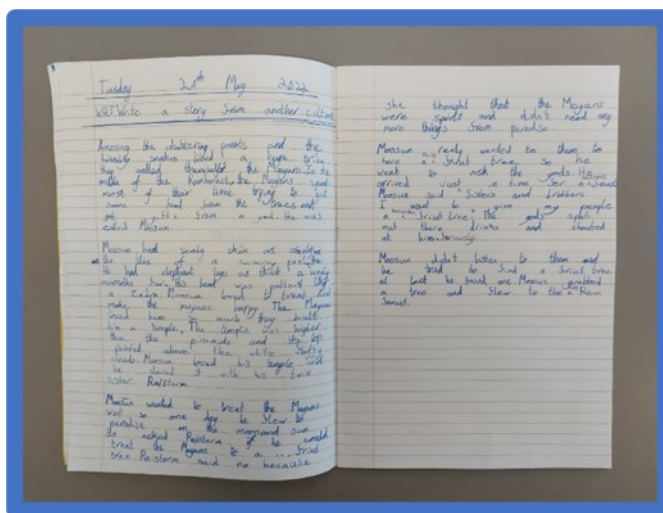 Tuesday 24th May 2022
Write a story from another culture
Among the chattering parrots and the
hissing snakes lived a huge tribe
they called themselves the Mayans. In the
middle of the Rainforest, the Mayans spent
most of their time trying to get
some food from the trees and
from a god. He was
called Moosun.
Moosun had sandy skin as
as the tiles of a swimming pool
He had elephant legs as thick a wooly
mamoths fur. His head was patterned like
a Zebra. Moosun loved to treat and
make the mayans happy. The Mayans
loved him so much they built
him a temple. The temple was higher
than the pyramids and the top
poked above the white fluffy
clouds. Moosun loved his temple and
he shared it with his twin
sister Rainstorm.
Moosun wanted to treat the Mayans
well so one day he flew to
paradise on the sun.
He asked Rainstorm if he could
treat the Mayans to a ... fruit
tree. Rainstorm said no because
she thought that the Mayans
were spoilt and didn't need any
more things from paradise.
Moosun realy wanted to them to
have a fruit tree so he
went to ask the gods. He
arrived just in time for a
Moosun said "Sisters and brothers
I want to give my people
a fruit tree". The gods spat
out there drinks and shouted
at him furiously.
Moosun didn't listen to them and
he tried to find a fruit tree.
at last he found one. Moosun grabbed
a tree and flew to the Rain
forest.